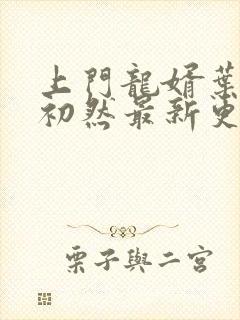 上門龍婿葉
初然最新更
栗子與二宮